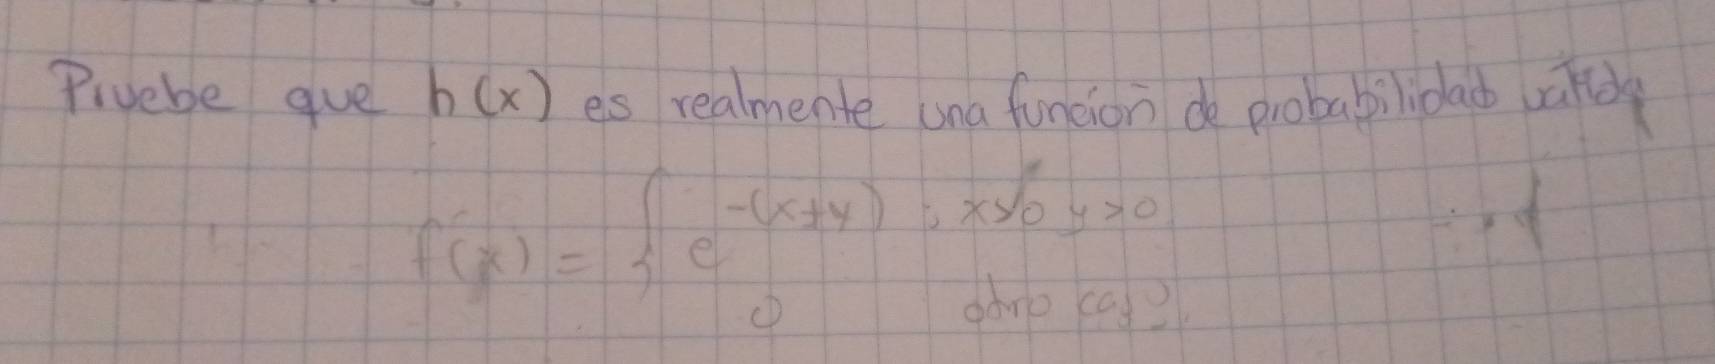 Pruebe que h(x) es realmente una función de probabilidad válida
f(x) = { e^-(x+y) ; x>0 y>0
0 otro caso.